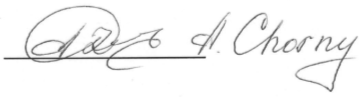 A. Chorny